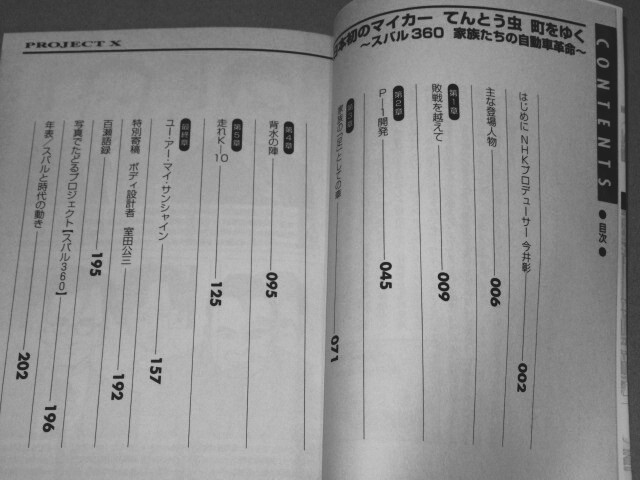 CONTENTS
●目次●
本初のマイカー てんとう虫 町をゆく
～スバル360 家族たちの自動車革命～
はじめに NHKプロデューサー 今井彰 002
主な登場人物 006
第1章
敗戦を越えて 009
第2章
P-1開発 045
071
PROJECT X
第4章
背水の陣 095
第5章
走れK-10 125
最終章
ユー・アー・マイ・サンシャイン 157
特別寄稿 ボディ設計者 室田公三 192
百瀬語録 195
写真でたどるプロジェクト【スバル360】 196
年表/スバルと時代の動き 202